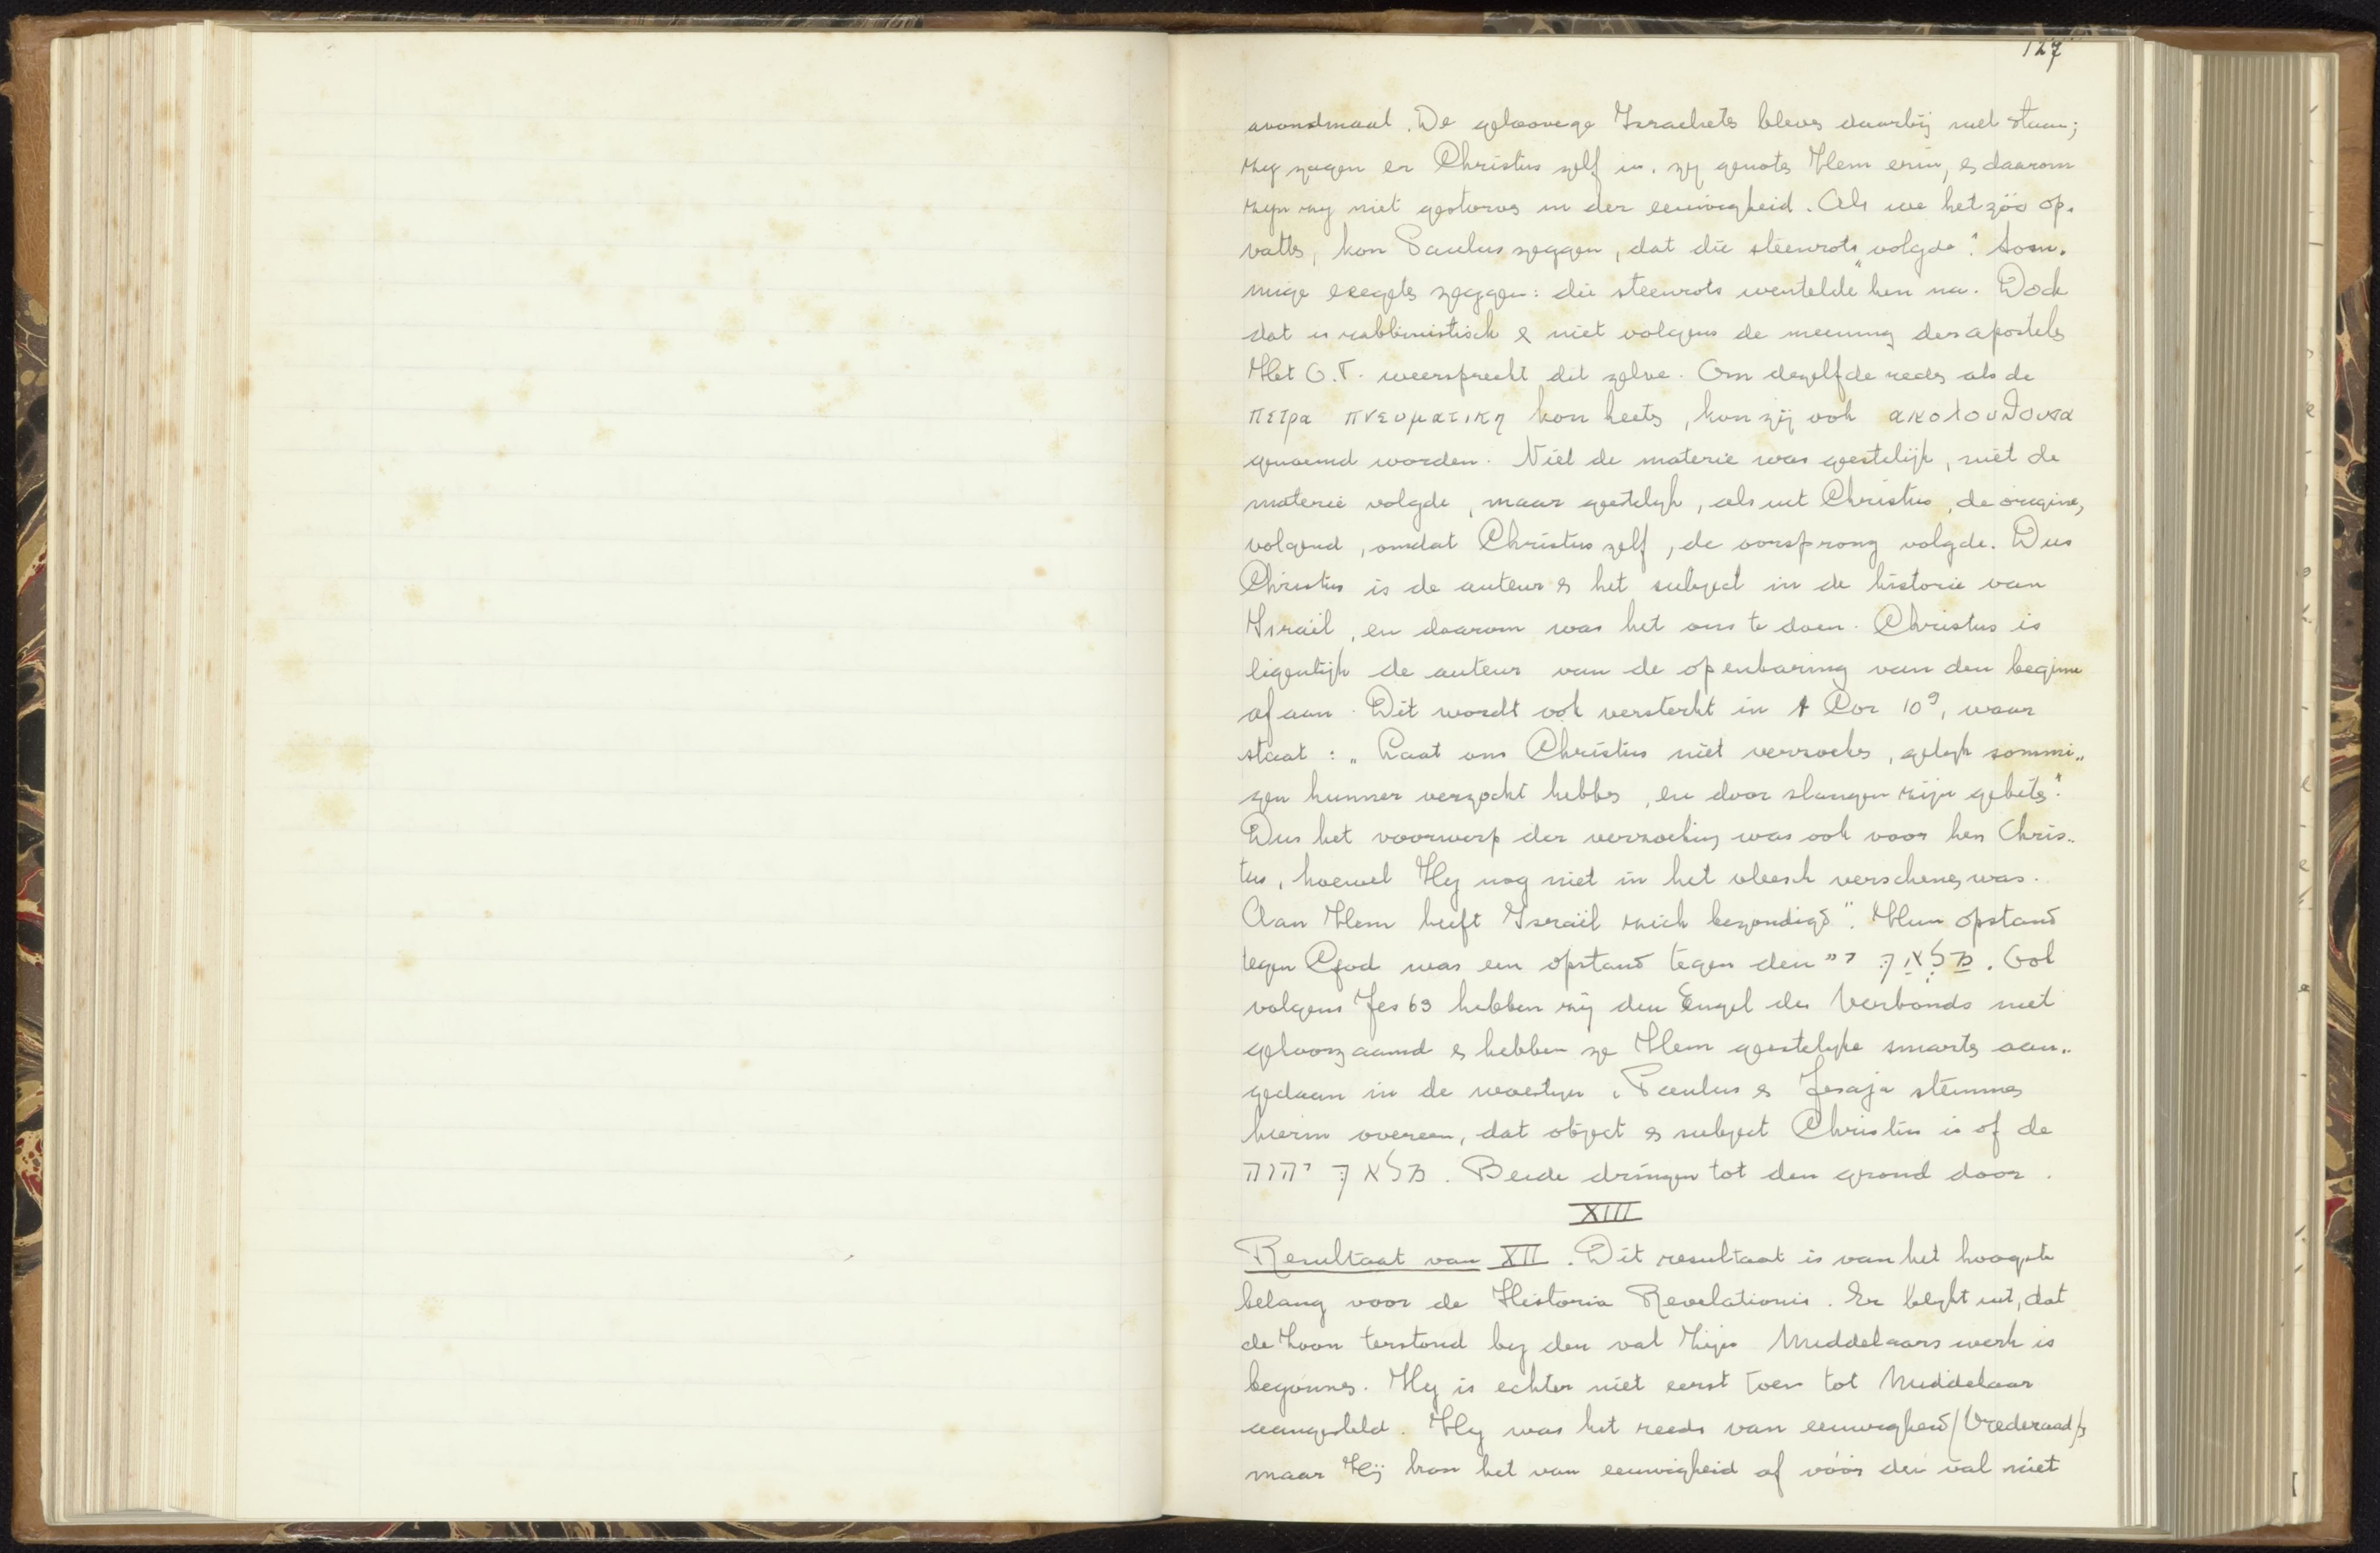 127
avondmaal. De geloovige Israelieten bleven daarbij niet staan;
zij zagen er Christus zelf in. zij genoten Hem erin, en daarom
zijn zij niet gestorven in der eeuwigheid. Als we het zóó op-
vatten, kon Paulus zeggen, dat die steenrots „volgde". Som-
mige exegeten zeggen: die steenrots wentelde hen na. Doch
dat is rabbinistisch & niet volgens de meening des apostels
Het O.T. weerspreekt dit zelve. Om dezelfde reden als de
πετρα πνευματικη kon heeten, kon zij ook ακολουθουσα
genoemd worden. Niet de materie was geestelijk, niet de
materie volgde, maar geestelijk, als uit Christus, de origine,
volgend, omdat Christus zelf, de oorsprong volgde. Dus
Christus is de auteur en het subject in de historie van
Israël, en daarom was het ons te doen. Christus is
eigenlijk de auteur van de openbaring van den beginne
af aan. Dit wordt ook versterkt in 1 Cor 10⁹, waar
staat: „Laat ons Christus niet verzoeken, gelijk sommi-
gen hunner verzocht hebben, en door slangen zijn gebeten."
Dus het voorwerp der verzoeking was ook voor hen Chris-
tus, hoewel Hij nog niet in het vleesch verschenen was.
Aan Hem heeft Israël zich bezondigd". Hun opstand
tegen God was een opstand tegen den מַלְאַךְ י״י. Ook
volgens Jes 63 hebben zij den Engel des Verbonds niet
gehoorzaamd en hebben ze Hem geestelijke smarten aan-
gedaan in de woestijn. Paulus en Jesaja stemmen
hierin overeen, dat object en subject Christus is of de
מלאךְ יהוה. Beide dringen tot den grond door.
XIII
Resultaat van XII. Dit resultaat is van het hoogste
belang voor de Historia Revelationis. Er blijkt uit, dat
de Zoon terstond bij den val Zijn Middelaars werk is
begonnen. Hij is echter niet eerst toen tot Middelaar
aangesteld. Hij was het reeds van eeuwigheid (Vrederaad)
maar Hij kon het van eeuwigheid af vóór den val niet